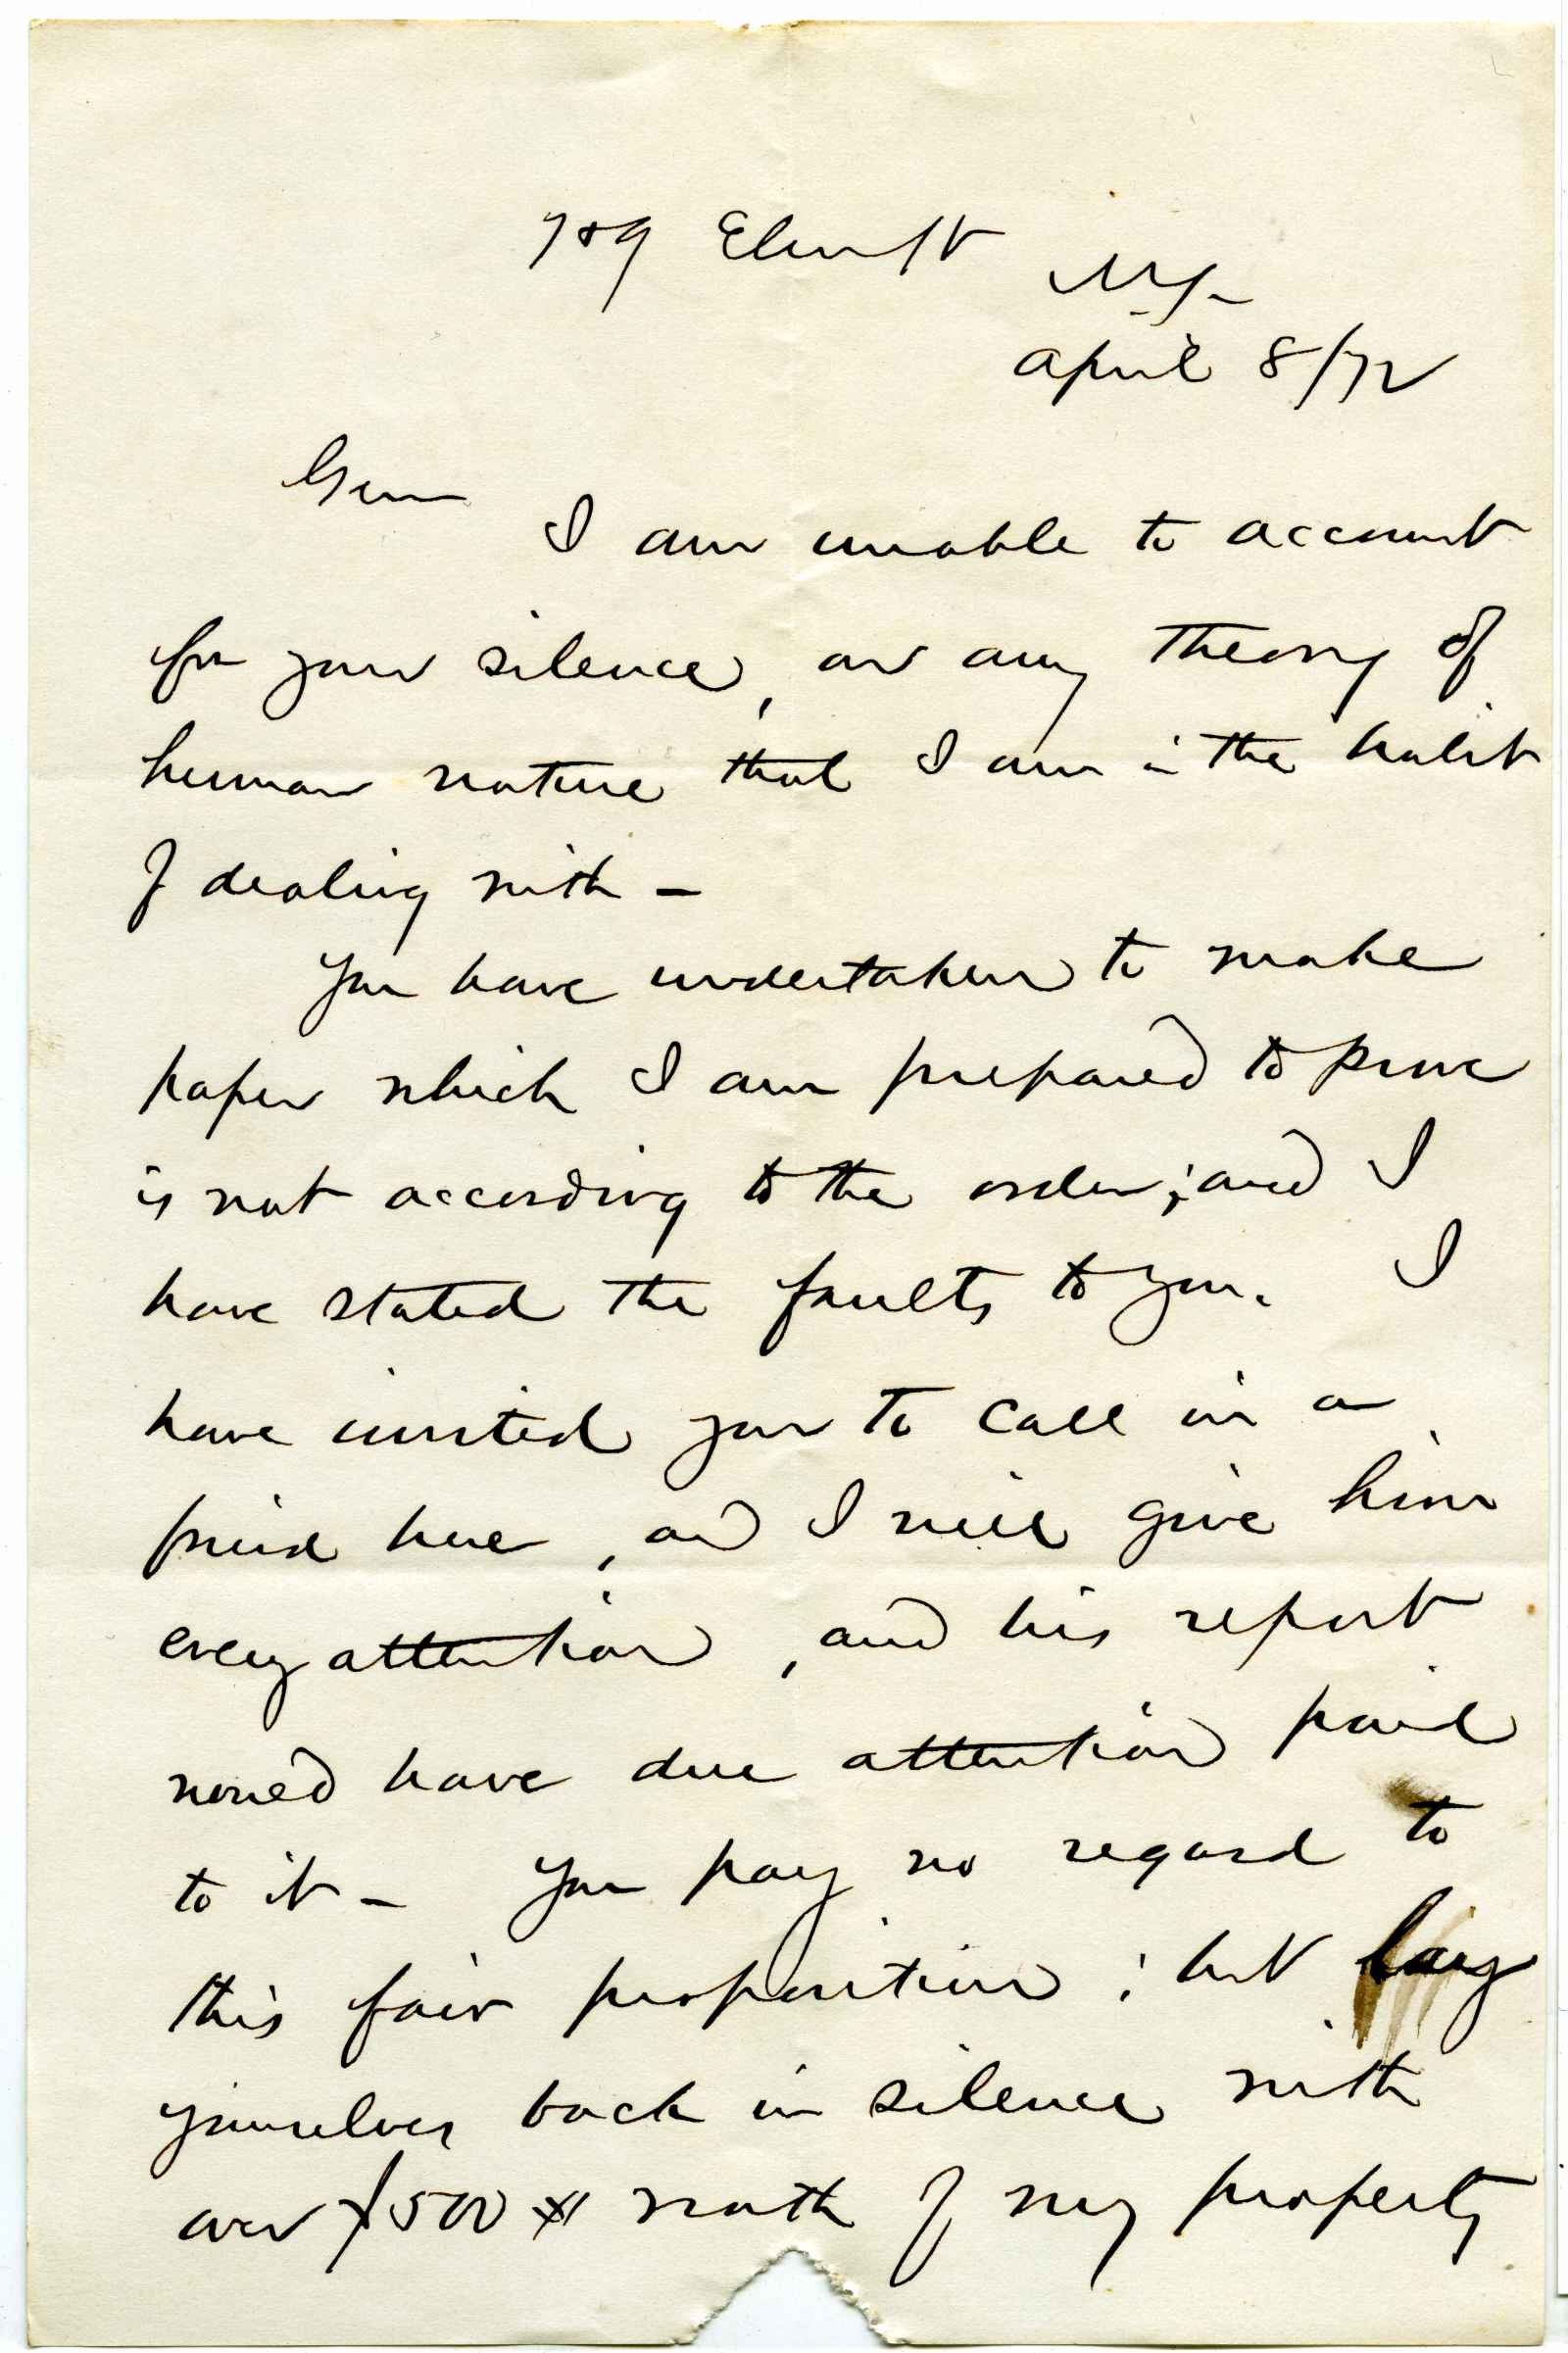 709 Elm St
N.Y.
April 8/72
Gen
I am unable to account
for your silence, on any theory of
human nature that I am in the habit
of dealing with -
You have undertaken to make
paper which I am prepared to prove
is not according to the order; and I
have stated the faults to you. I
have invited you to call in a
friend here, and I will give him
every attention, and his report
would have due attention paid
to it - You pay no regard to
this fair proposition; but lay
yourselves back in silence with
over $500 worth of my property